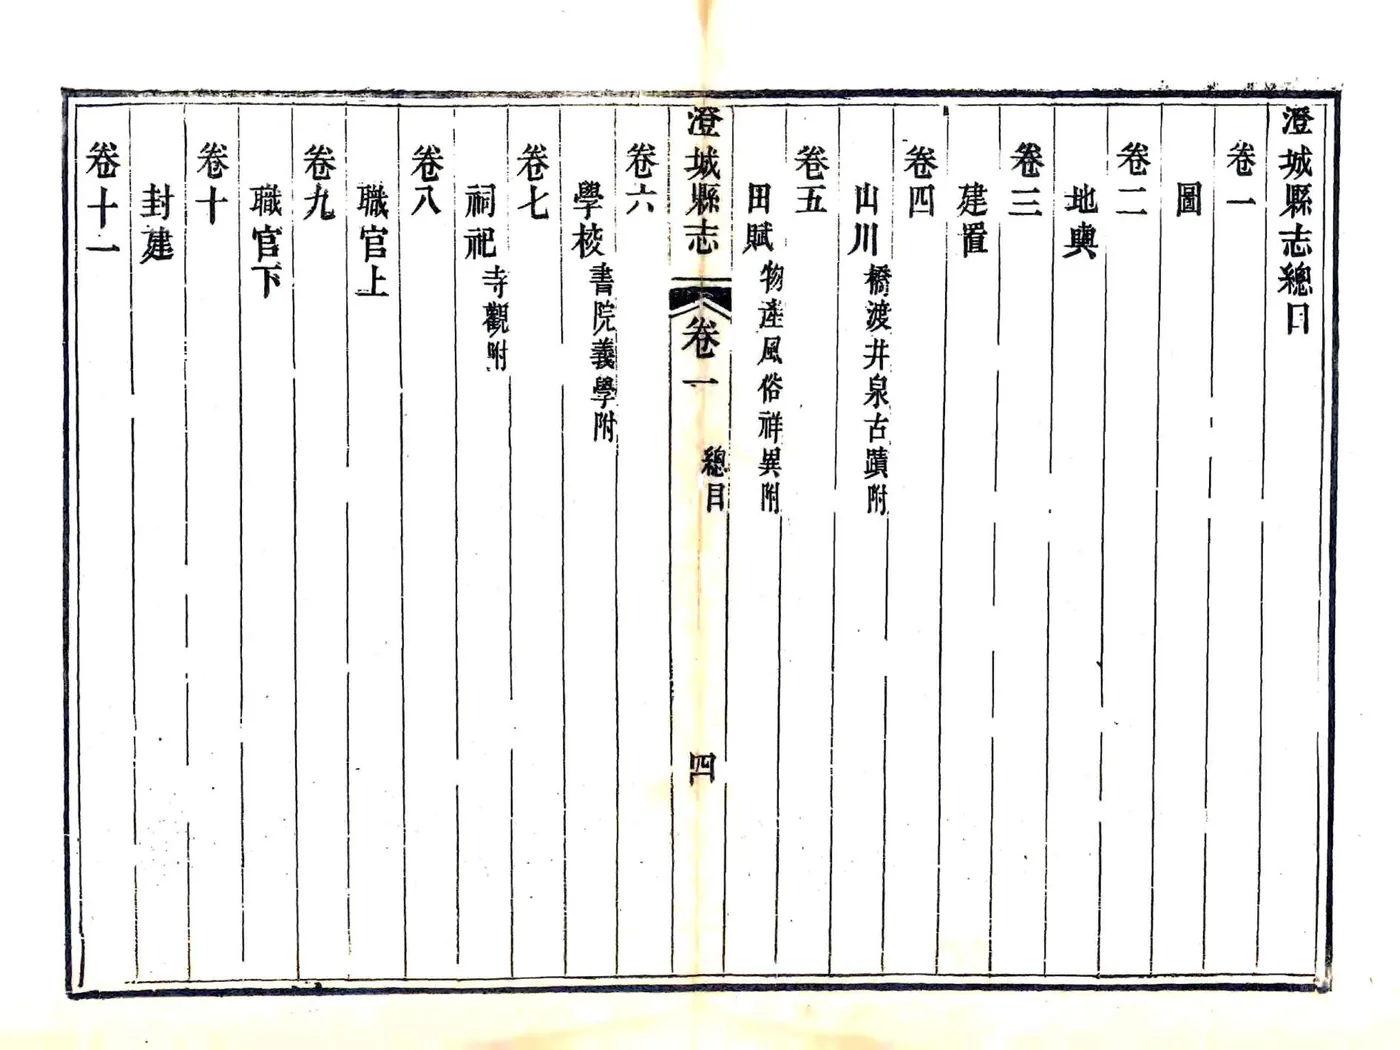 澄城縣志總目
卷一
圖
卷二
地輿
卷三
建置
卷四
山川橋渡井泉古蹟附
卷五
田賦物產風俗祥異附
澄城縣志 卷一 總目 四
卷六
學校書院義學附
卷七
祠祀寺觀附
卷八
職官上
卷九
職官下
卷十
封建
卷十一